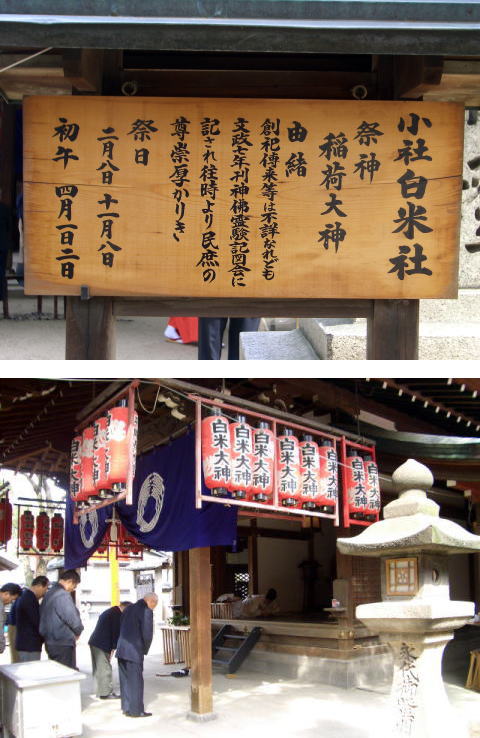 小社 白米社
祭神
稲荷大神
由緒
創祀傳来等は不詳なれども
文政七年刊神佛霊験記図会に
記され往時より民庶の
尊崇厚かりき
祭日
二月八日 十一月八日
初午 四月一日二日
白米大神
白米大神
白米大神
白米大神
白米大神
白米大神
白米大神
白米大神